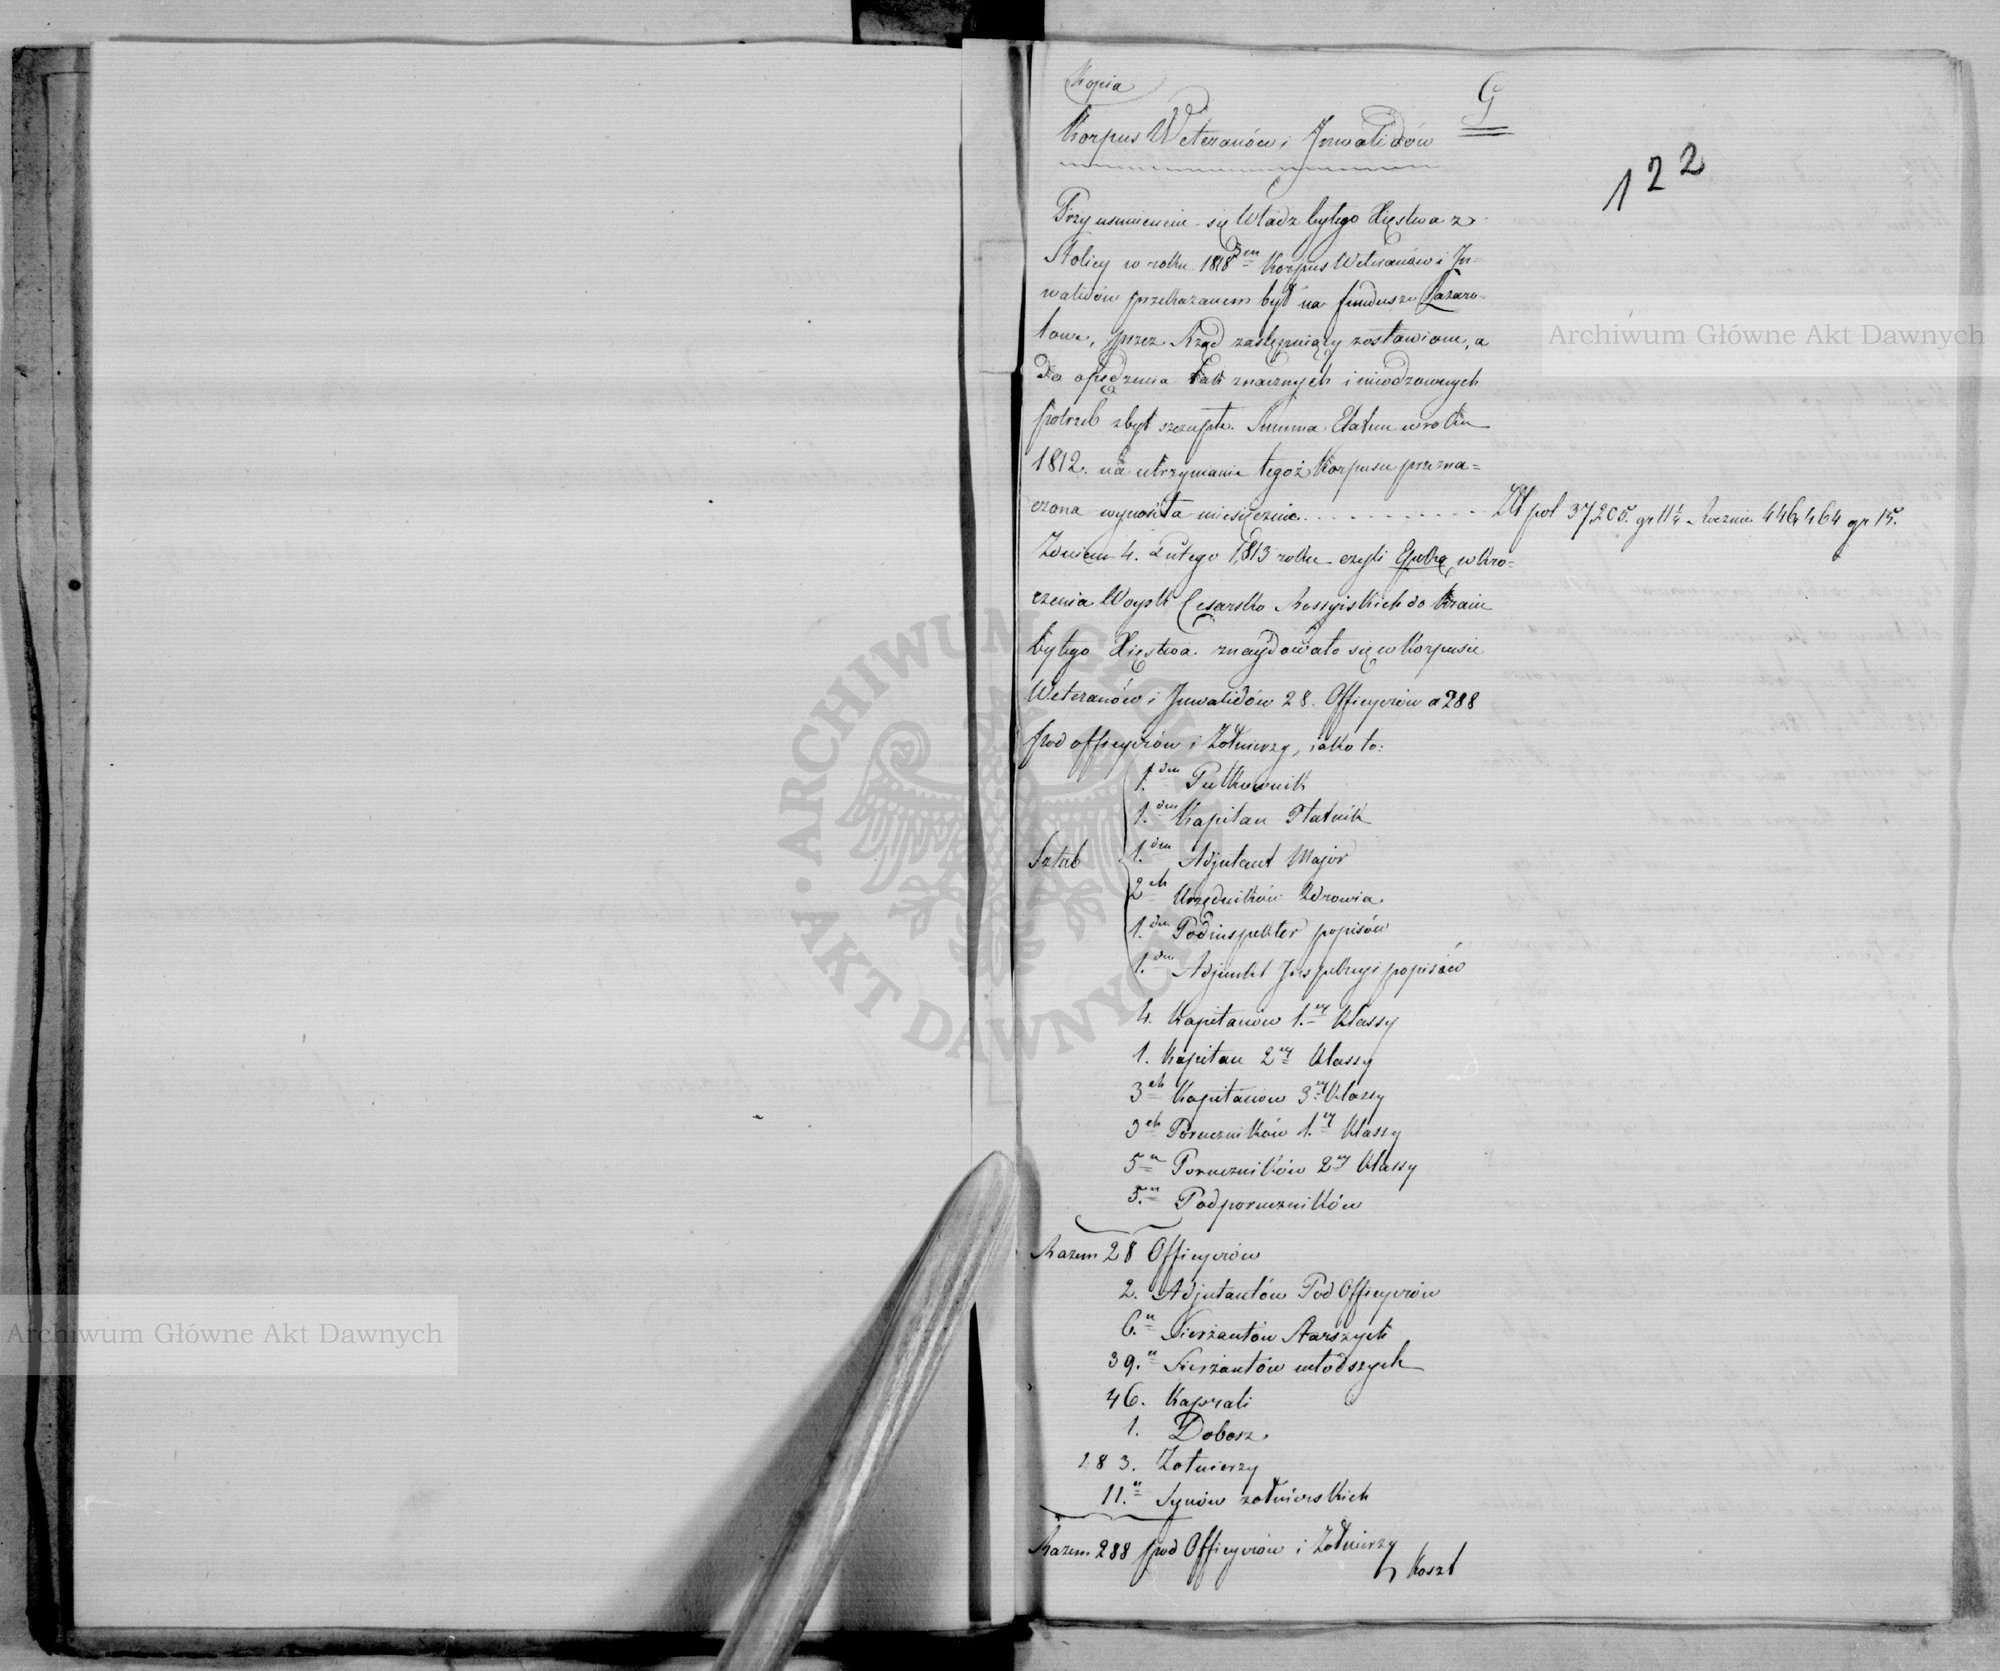 Kopia
G
Korpus Weteranów i Inwalidów
122
Przy usunieniu się Władz byłego Xięstwa z
Stolicy w roku 1813 Korpus Weteranów i In-
walidów przekazanem był na fundusze Lazaro-
towe, przez Rząd zastępniący zostawione, a
do opędzenia tak znacznych i nieodzownych
potrzeb zbyt szczupłe. Summa Etatem w roku
1812. na utrzymanie tegoż Korpusu przezna=
czona wynosiła miesięcznie . . . . . . . . . . . Złł pol 37,205. gr 11¼ Rocznie 446,464 gr 15.
Z dniem 4. Lutego 1813 roku czyli Epoką wkro=
czenia Woysk Cesarsko Rossyiskich do Kraiu
byłego Xięstwa znaydowało się w Korpusie
Weteranów i Inwalidów 28. Officyerów a 288
pod officyerów i Żołnierzy, iako to:
1.den Pułkownik
1.den Kapitan Płatnik
Sztab 1.den Adjutant Major
2ch Urzędników Zdrowia
1.den Podinspektor popisów
1.den Adjunkt Inspekcyi popisów
4. Kapitanów 1.ey Klassy
1. Kapitan 2ey Klassy
3ch Kapitanów 3ey Klassy
3ch Poruczników 1.ey Klassy
5u Poruczników 2ey Klassy
5.u Podporuczników
Razem 28 Officyerów
2. Adjutantów Pod Officyerów
6.u Sierżantów Starszych
39.u Sierżantów młodszych
46. Kaprali
1. Dobosz
183. Żołnierzy
11.u Synów żołnierskich
Razem 288 pod Officyerów i Żołnierzy
Koszt
Archiwum Główne Akt Dawnych
Archiwum Główne Akt Dawnych
ARCHIWUM GŁÓWNE AKT DAWNYCH